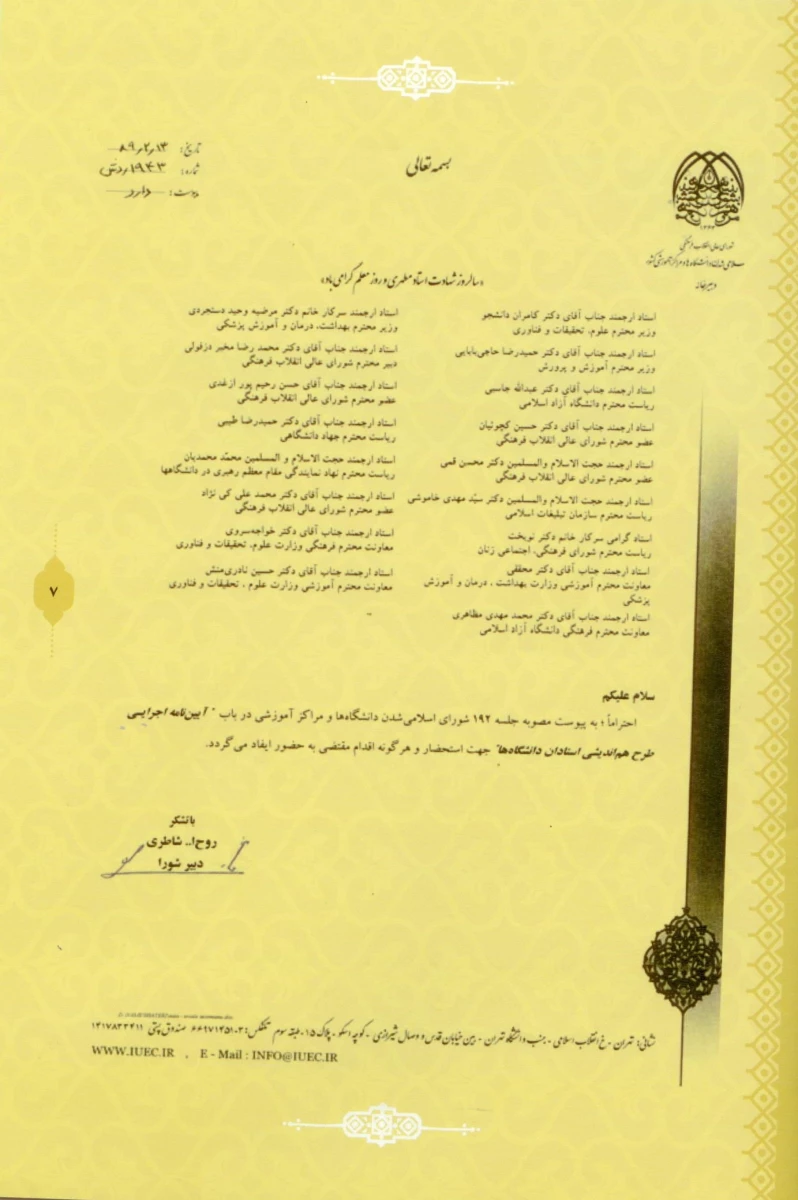 بسمه تعالی
تاریخ: ۸۹٫۲٫۱۳
شماره: ۱۹۴۳/دش
پیوست: دارد
شورای عالی انقلاب فرهنگی
اسلامی شدن دانشگاه‌ها و مراکز آموزشی کشور
دبیرخانه
«سالروز شهادت استاد مطهری و روز معلم گرامی باد»
استاد ارجمند جناب آقای دکتر کامران دانشجو
وزیر محترم علوم، تحقیقات و فناوری
استاد ارجمند جناب آقای دکتر حمیدرضا حاجی‌بابایی
وزیر محترم آموزش و پرورش
استاد ارجمند جناب آقای دکتر عبدالله جاسبی
ریاست محترم دانشگاه آزاد اسلامی
استاد ارجمند جناب آقای دکتر حسین کچوئیان
عضو محترم شورای عالی انقلاب فرهنگی
استاد ارجمند حجت الاسلام والمسلمین دکتر محسن قمی
عضو محترم شورای عالی انقلاب فرهنگی
استاد ارجمند حجت الاسلام والمسلمین دکتر سیّد مهدی خاموشی
ریاست محترم سازمان تبلیغات اسلامی
استاد گرامی سرکار خانم دکتر نوبخت
ریاست محترم شورای فرهنگی، اجتماعی زنان
استاد ارجمند جناب آقای دکتر محققی
معاونت محترم آموزشی وزارت بهداشت ، درمان و آموزش
پزشکی
استاد ارجمند جناب آقای دکتر محمد مهدی مظاهری
معاونت محترم فرهنگی دانشگاه آزاد اسلامی
استاد ارجمند سرکار خانم دکتر مرضیه وحید دستجردی
وزیر محترم بهداشت، درمان و آموزش پزشکی
استاد ارجمند جناب آقای دکتر محمد رضا مخبر دزفولی
دبیر محترم شورای عالی انقلاب فرهنگی
استاد ارجمند جناب آقای حسن رحیم پور ازغدی
عضو محترم شورای عالی انقلاب فرهنگی
استاد ارجمند جناب آقای دکتر حمیدرضا طیبی
ریاست محترم جهاد دانشگاهی
استاد ارجمند حجت الاسلام و المسلمین محمّد محمدیان
ریاست محترم نهاد نمایندگی مقام معظم رهبری در دانشگاهها
استاد ارجمند جناب آقای دکتر محمد علی کی نژاد
عضو محترم شورای عالی انقلاب فرهنگی
استاد ارجمند جناب آقای دکتر خواجه‌سروی
معاونت محترم فرهنگی وزارت علوم، تحقیقات و فناوری
استاد ارجمند جناب آقای دکتر حسین نادری‌منش
معاونت محترم آموزشی وزارت علوم ، تحقیقات و فناوری
۷
سلام علیکم
احتراماً ؛ به پیوست مصوبه جلسه ۱۹۲ شورای اسلامی‌شدن دانشگاه‌ها و مراکز آموزشی در باب " آیین‌نامه اجرایی
طرح هم‌اندیشی استادان دانشگاه‌ها" جهت استحضار و هرگونه اقدام مقتضی به حضور ایفاد می‌گردد.
باتشکر
روح‌ا.. شاطری
دبیر شورا
نشانی: تهران - خ انقلاب اسلامی - جنب دانشگاه تهران - بین خیابان قدس و وصال شیرازی - کوچه اسکو - پلاک ۱۵ - طبقه سوم تلفکس: ۳-۶۶۹۷۱۴۵۱ صندوق پستی ۱۴۱۷۸۳۳۴۱۱
WWW.IUEC.IR , E - Mail : INFO@IUEC.IR